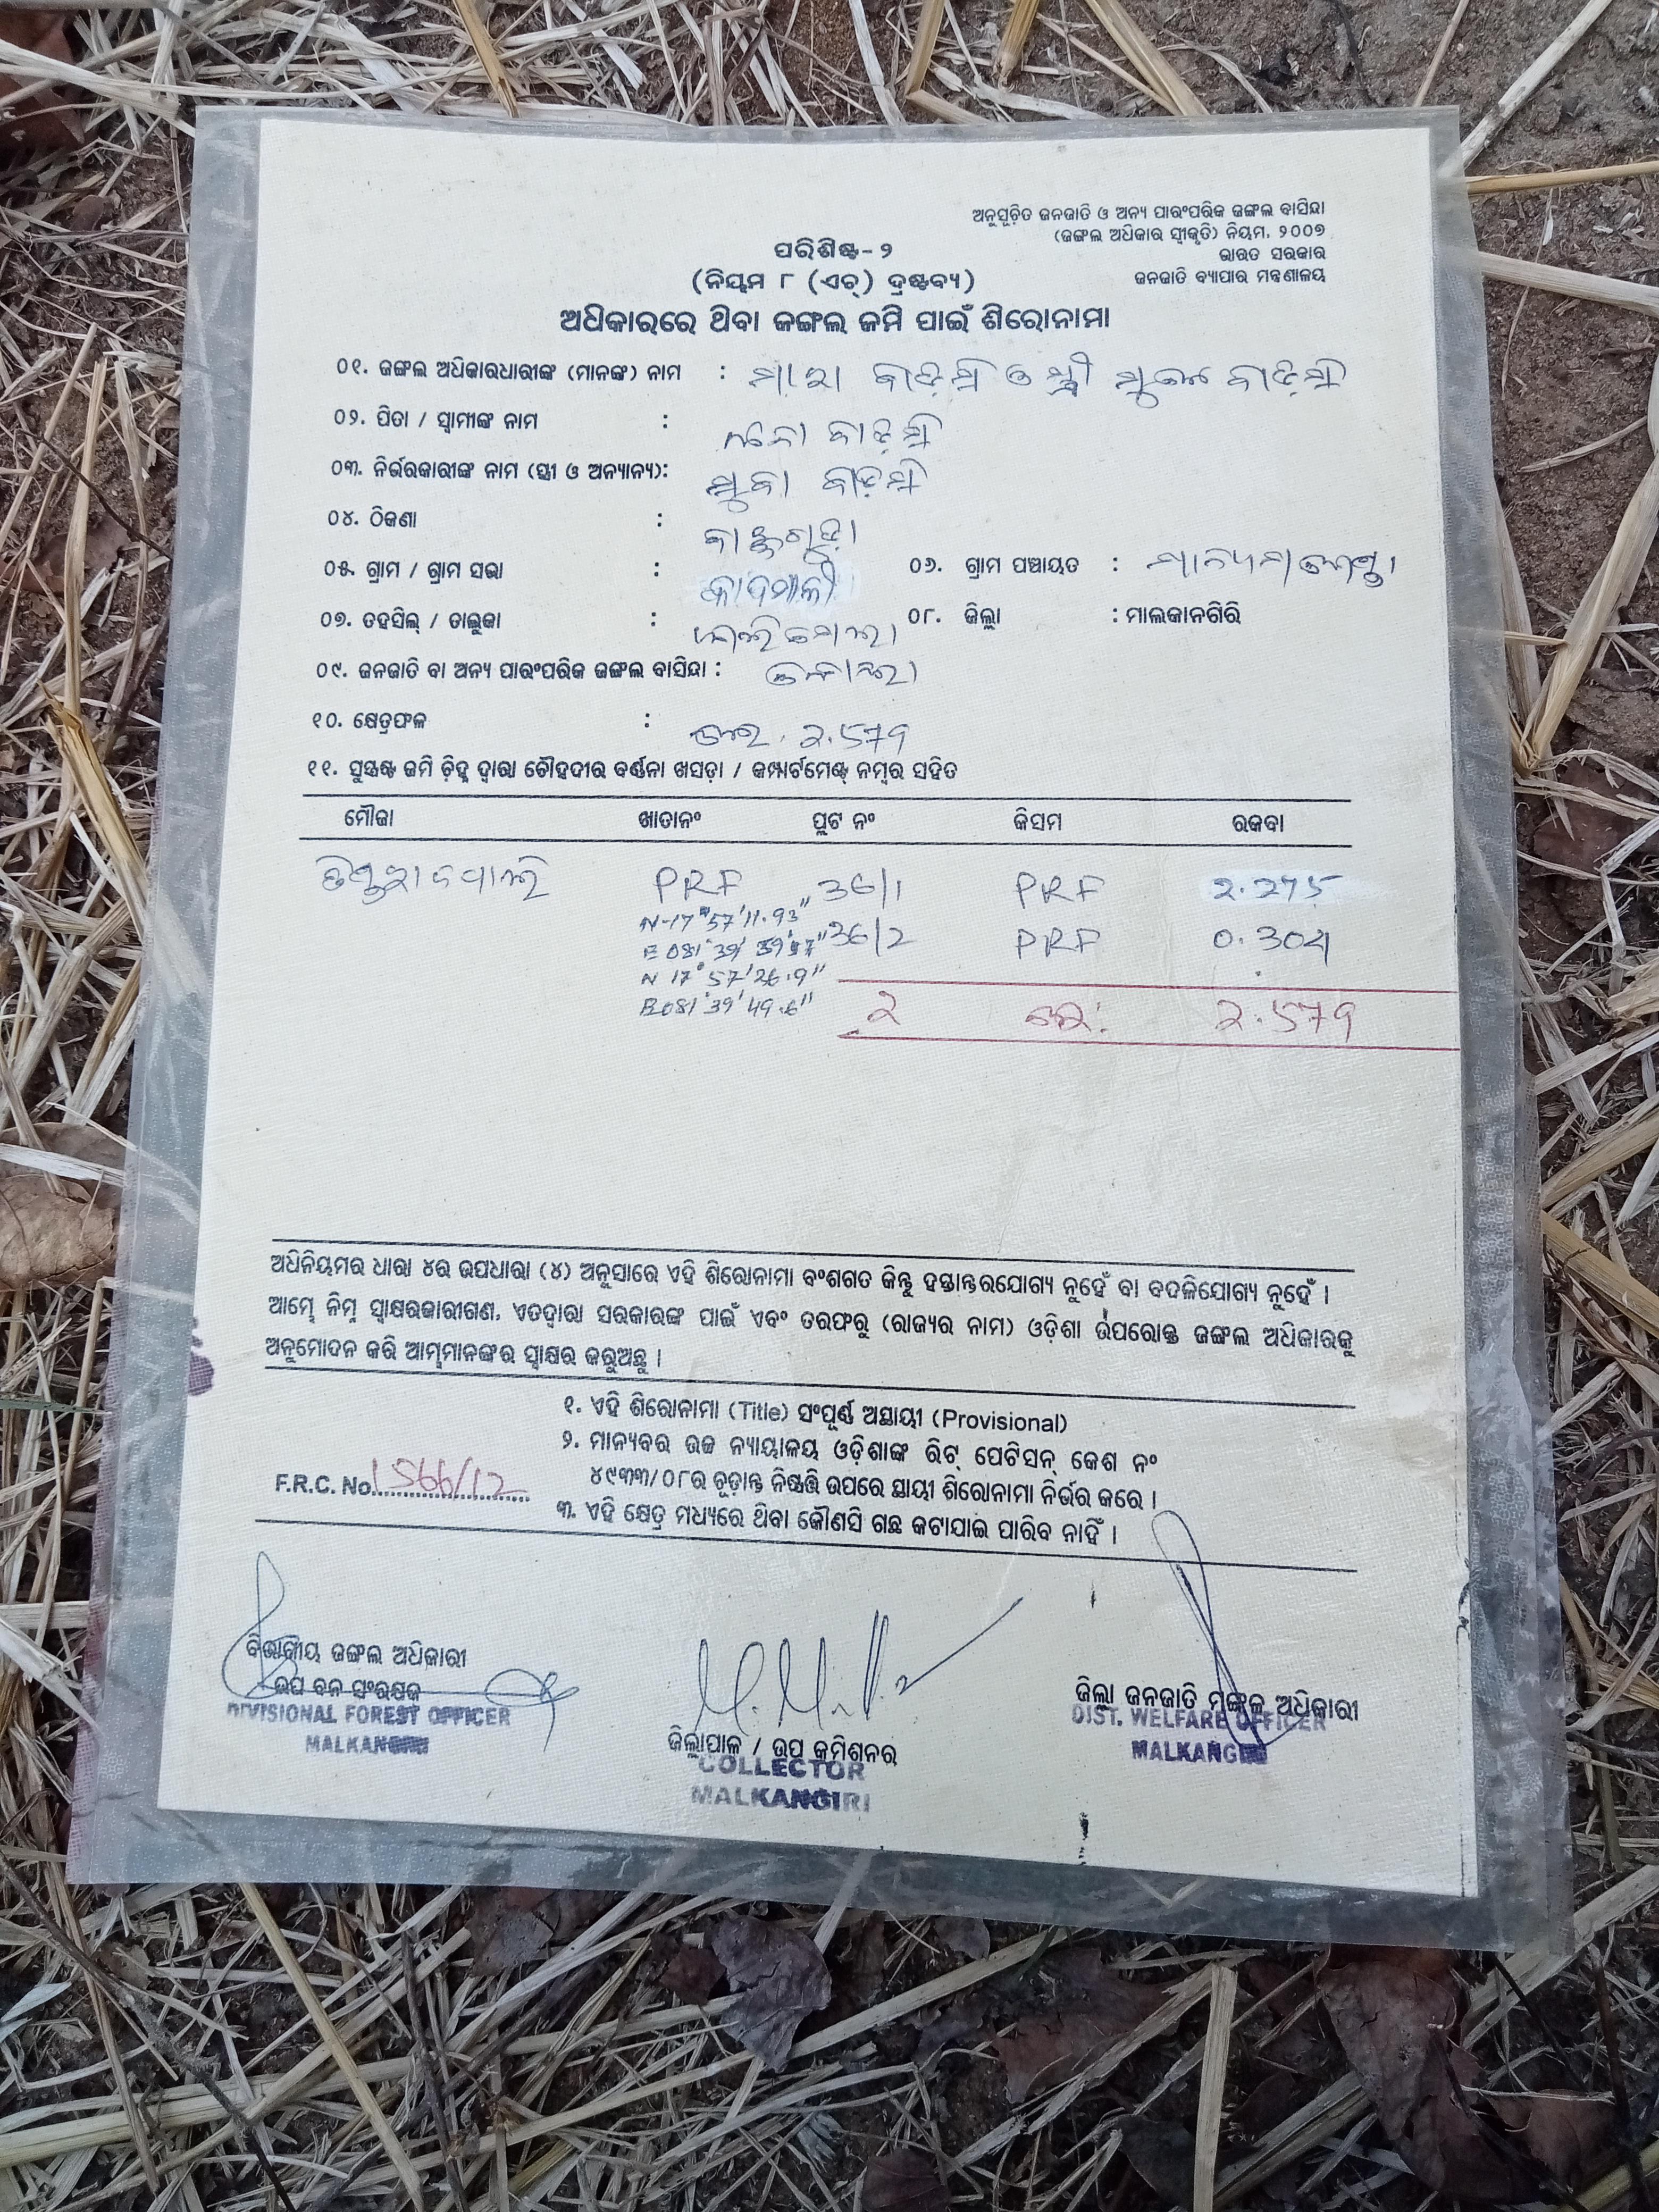 ଅନୁସୂଚିତ ଜନଜାତି ଓ ଅନ୍ୟ ପାରଂପରିକ ଜଙ୍ଗଲ ବାସିନ୍ଦା
(ଜଙ୍ଗଲ ଅଧିକାର ସ୍ୱୀକୃତି) ନିୟମ, ୨୦୦୭
ଭାରତ ସରକାର
ଜନଜାତି ବ୍ୟାପାର ମନ୍ତ୍ରଣାଳୟ
ପରିଶିଷ୍ଟ-୨
(ନିୟମ ୮ (ଏଚ୍) ଦ୍ରଷ୍ଟବ୍ୟ)
ଅଧିକାରରେ ଥିବା ଜଙ୍ଗଲ ଜମି ପାଇଁ ଶିରୋନାମା
୦୧. ଜଙ୍ଗଲ ଅଧିକାରଧାରୀଙ୍କ (ମାନଙ୍କ) ନାମ :
୦୨. ପିତା / ସ୍ୱାମୀଙ୍କ ନାମ :
୦୩. ନିର୍ଭରକାରୀଙ୍କ ନାମ (ସ୍ତ୍ରୀ ଓ ଅନ୍ୟାନ୍ୟ):
୦୪. ଠିକଣା :
୦୫. ଗ୍ରାମ / ଗ୍ରାମ ସଭା : ୦୬. ଗ୍ରାମ ପଞ୍ଚାୟତ :
୦୭. ତହସିଲ୍ / ତାଲୁକା : ୦୮. ଜିଲ୍ଲା : ମାଲକାନଗିରି
୦୯. ଜନଜାତି ବା ଅନ୍ୟ ପାରଂପରିକ ଜଙ୍ଗଲ ବାସିନ୍ଦା :
୧୦. କ୍ଷେତ୍ରଫଳ : 2.579
୧୧. ସୁସ୍ପଷ୍ଟ ଜମି ଚିହ୍ନ ଦ୍ୱାରା ଚୌହଦୀର ବର୍ଣ୍ଣନା ଖସଡ଼ା / କମ୍ପାର୍ଟମେଣ୍ଟ୍ ନମ୍ବର ସହିତ
ମୌଜା ଖାତାନଂ ପ୍ଲଟ ନଂ କିସମ ରକବା
PRF 36/1 PRF 2.275
N-17°57'11.93"
E 081°39' 36/2 PRF 0.304
N 17°57'26.9"
E081°39'49.6" 2 2.579
ଅଧିନିୟମର ଧାରା ୪ର ଉପଧାରା (୪) ଅନୁସାରେ ଏହି ଶିରୋନାମା ବଂଶଗତ କିନ୍ତୁ ହସ୍ତାନ୍ତରଯୋଗ୍ୟ ନୁହେଁ ବା ବଦଳିଯୋଗ୍ୟ ନୁହେଁ ।
ଆମ୍ଭେ ନିମ୍ନ ସ୍ୱାକ୍ଷରକାରୀଗଣ, ଏତଦ୍ୱାରା ସରକାରଙ୍କ ପାଇଁ ଏବଂ ତରଫରୁ (ରାଜ୍ୟର ନାମ) ଓଡ଼ିଶା ଉପରୋକ୍ତ ଜଙ୍ଗଲ ଅଧିକାରକୁ
ଅନୁମୋଦନ କରି ଆମ୍ଭମାନଙ୍କର ସ୍ୱାକ୍ଷର କରୁଅଛୁ ।
୧. ଏହି ଶିରୋନାମା (Title) ସଂପୂର୍ଣ୍ଣ ଅସ୍ଥାୟୀ (Provisional)
୨. ମାନ୍ୟବର ଉଚ୍ଚ ନ୍ୟାୟାଳୟ ଓଡ଼ିଶାଙ୍କ ରିଟ୍ ପେଟିସନ୍ କେଶ ନଂ
୪୯୩୩/୦୮ର ଚୂଡ଼ାନ୍ତ ନିଷ୍ପତ୍ତି ଉପରେ ସ୍ଥାୟୀ ଶିରୋନାମା ନିର୍ଭର କରେ ।
F.R.C. No. 1566/12
୩. ଏହି କ୍ଷେତ୍ର ମଧ୍ୟରେ ଥିବା କୌଣସି ଗଛ କଟାଯାଇ ପାରିବ ନାହିଁ ।
ବିଭାଗୀୟ ଜଙ୍ଗଲ ଅଧିକାରୀ
ଉପ ବନ ସଂରକ୍ଷକ
DIVISIONAL FOREST OFFICER
MALKANGIRI
ଜିଲ୍ଲାପାଳ / ଉପ କମିଶନର
COLLECTOR
MALKANGIRI
ଜିଲ୍ଲା ଜନଜାତି ମଙ୍ଗଳ ଅଧିକାରୀ
DIST. WELFARE OFFICER
MALKANGIRI